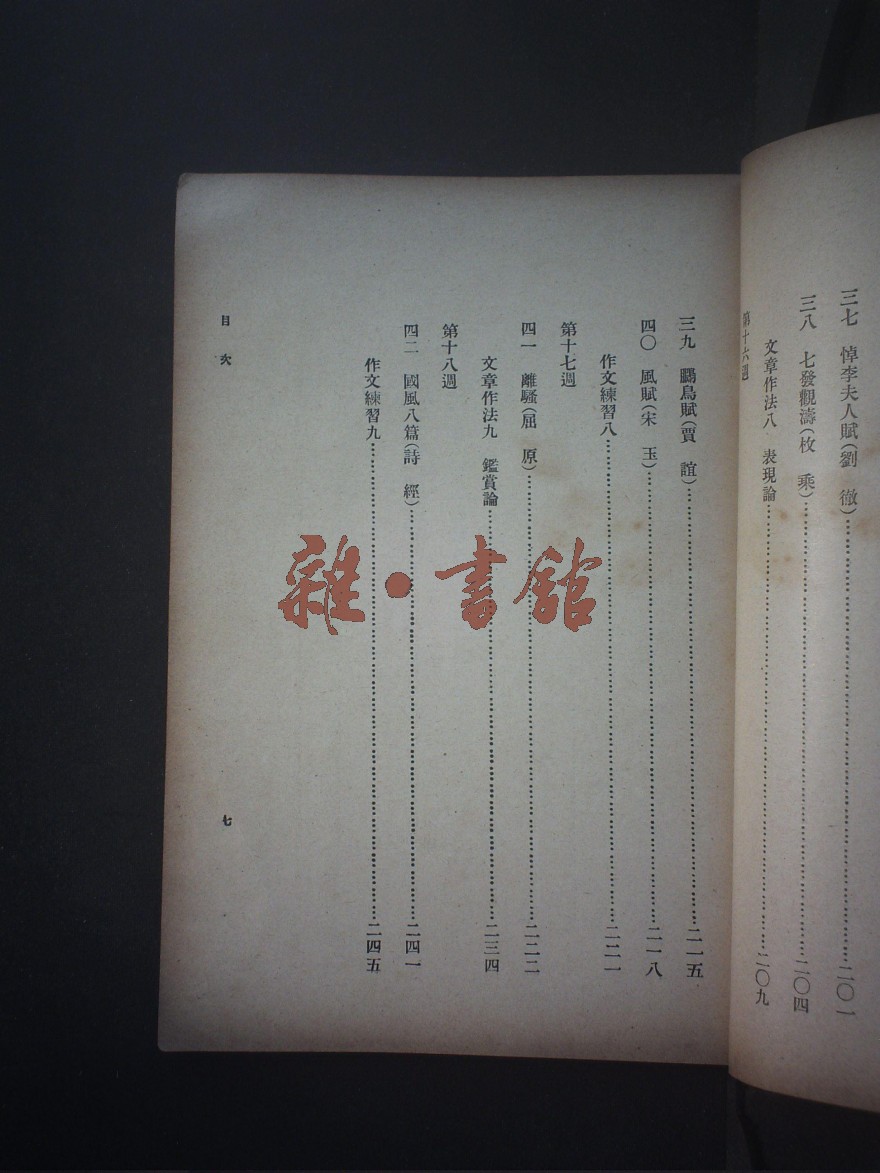 三七　悼李夫人賦（劉　徹）……二〇一
三八　七發觀濤（枚　乘）……二〇四
文章作法八　表現論……二〇九
第十六週
三九　鵩鳥賦（賈　誼）……二一五
四〇　風賦（宋　玉）……二一八
作文練習八……二二一
第十七週
四一　離騷（屈　原）……二二二
文章作法九　鑑賞論……二三四
第十八週
四二　國風八篇（詩　經）……二四一
作文練習九……二四五
目次
七
雜·書館